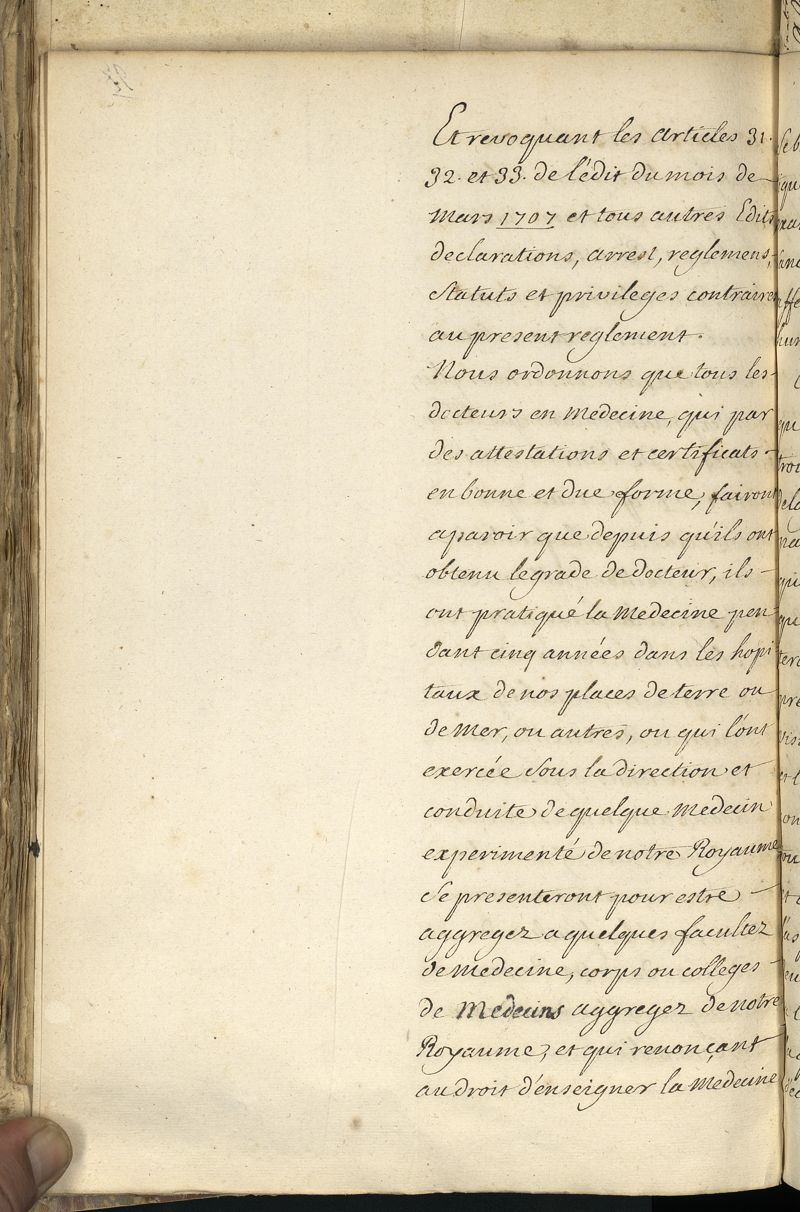 Et revoquant les articles 31.
32. et 33. de l'édit du mois de
Mars 1707 et tous autres Edits
declarations, arrest, reglemens,
statuts et privileges contraires
au present reglement.
Nous ordonnons que tous les
docteurs en Medecine, qui par
des attestations et certificats
en bonne et due forme, fairont
aparoir que depuis qu'ils ont
obtenu le grade de docteur, ils
ont pratiqué la Medecine pen
dant cinq années dans les hopi
taux de nos places de terre ou
de Mer, ou autres, ou qui l'ont
exercée sous la direction et
conduite de quelque Medecin
experimenté de notre Royaume
se presenteront pour estre
aggregez a quelques facultez
de Medecine, corps ou colleges
de Medecins aggregez de notre
Royaume, et qui renonçant
au droit d'enseigner la Medecine